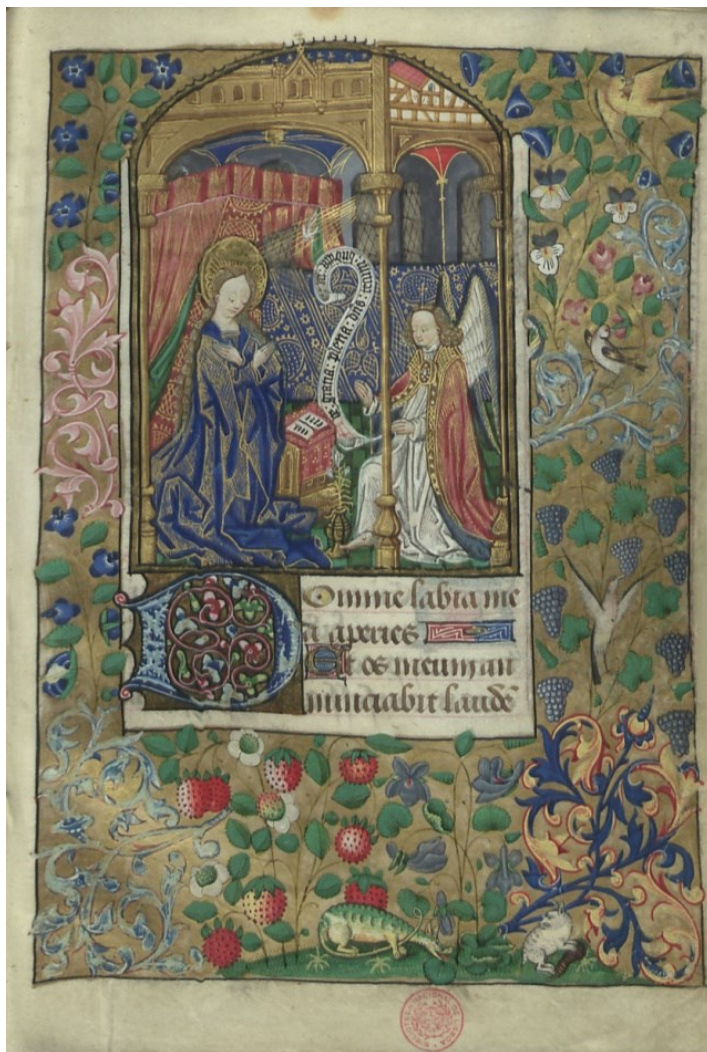 gratia: plena: dñs:
Domine labia me
a aperies
Et os meum an
nunciabit laudē